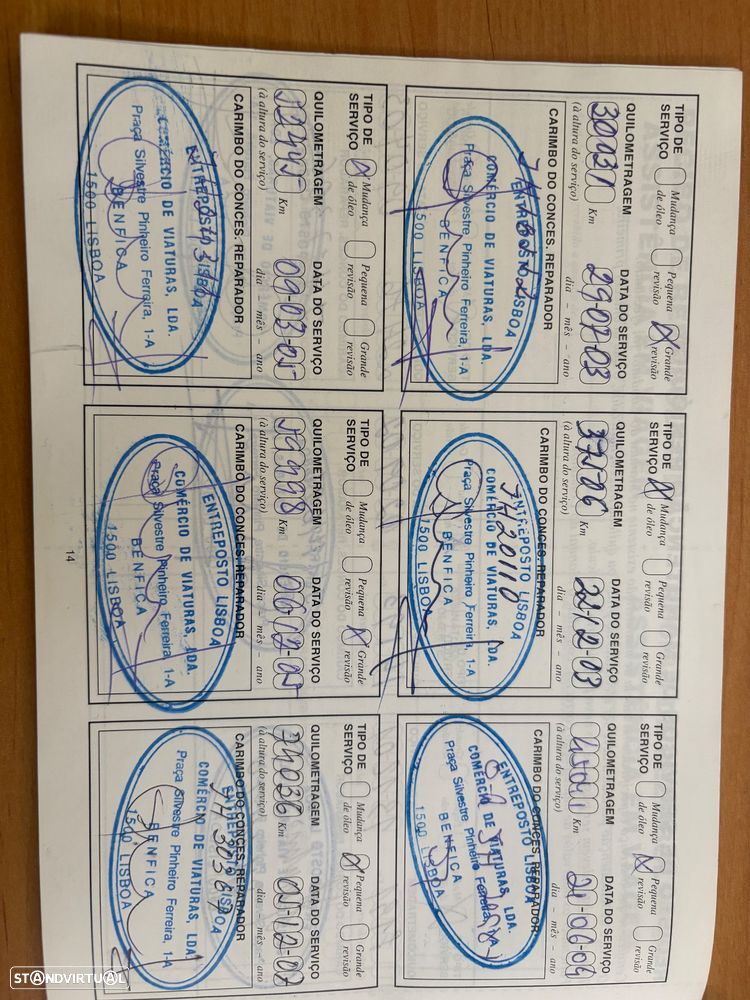 TIPO DE
SERVIÇO
Mudança
de óleo
Pequena
revisão
Grande
revisão
QUILOMETRAGEM
(à altura do serviço)
30131 Km
DATA DO SERVIÇO
29-07-03
dia – mês – ano
CARIMBO DO CONCES. REPARADOR
ENTREPOSTO LISBOA
COMÉRCIO DE VIATURAS, LDA.
Praça Silvestre Pinheiro Ferreira, 1-A
BENFICA
1500 LISBOA
TIPO DE
SERVIÇO
Mudança
de óleo
Pequena
revisão
Grande
revisão
QUILOMETRAGEM
(à altura do serviço)
Km
DATA DO SERVIÇO
22-12-03
dia – mês – ano
CARIMBO DO CONCES. REPARADOR
ENTREPOSTO LISBOA
COMÉRCIO DE VIATURAS, LDA.
Praça Silvestre Pinheiro Ferreira, 1-A
BENFICA
1500 LISBOA
TIPO DE
SERVIÇO
Mudança
de óleo
Pequena
revisão
Grande
revisão
QUILOMETRAGEM
(à altura do serviço)
Km
DATA DO SERVIÇO
21-06-04
dia – mês – ano
CARIMBO DO CONCES. REPARADOR
ENTREPOSTO LISBOA
COMÉRCIO DE VIATURAS, LDA.
Praça Silvestre Pinheiro Ferreira, 1-A
BENFICA
1500 LISBOA
TIPO DE
SERVIÇO
Mudança
de óleo
Pequena
revisão
Grande
revisão
QUILOMETRAGEM
(à altura do serviço)
52445 Km
DATA DO SERVIÇO
09-03-05
dia – mês – ano
CARIMBO DO CONCES. REPARADOR
ENTREPOSTO LISBOA
COMÉRCIO DE VIATURAS, LDA.
Praça Silvestre Pinheiro Ferreira, 1-A
BENFICA
1500 LISBOA
TIPO DE
SERVIÇO
Mudança
de óleo
Pequena
revisão
Grande
revisão
QUILOMETRAGEM
(à altura do serviço)
59998 Km
DATA DO SERVIÇO
06-12-05
dia – mês – ano
CARIMBO DO CONCES. REPARADOR
ENTREPOSTO LISBOA
COMÉRCIO DE VIATURAS, LDA.
Praça Silvestre Pinheiro Ferreira, 1-A
BENFICA
1500 LISBOA
TIPO DE
SERVIÇO
Mudança
de óleo
Pequena
revisão
Grande
revisão
QUILOMETRAGEM
(à altura do serviço)
74036 Km
DATA DO SERVIÇO
dia – mês – ano
CARIMBO DO CONCES. REPARADOR
ENTREPOSTO LISBOA
COMÉRCIO DE VIATURAS, LDA.
Praça Silvestre Pinheiro Ferreira, 1-A
BENFICA
1500 LISBOA
14
STANDVIRTUAL